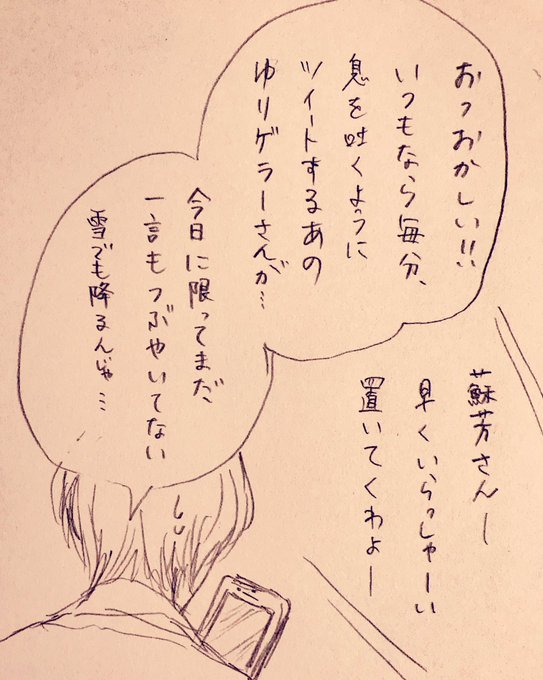 おっおかしい!!
いつもなら毎分、
息を吐くように
ツイートするあの
ゆりゲラーさんが…
今日に限ってまだ、
一言もつぶやいてない
雪でも降るんじゃ…
蘇芳さんー
早くいらっしゃーい
置いてくわよー